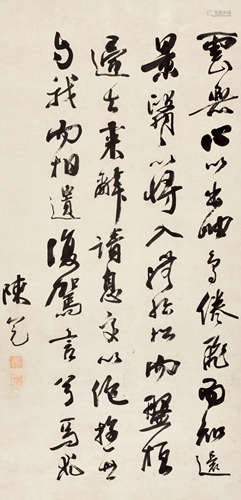 雲無心以出岫鳥倦飛而知還
景翳々以將入撫孤松而盤桓
歸去來辭請息交以絕游世
與我而相遺復駕言兮焉求
陳